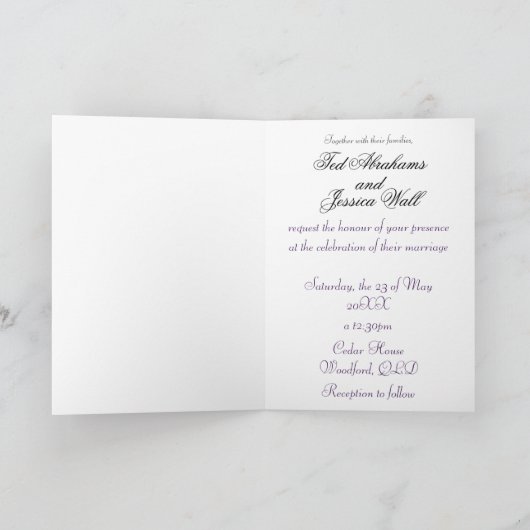 Together with their families,
Ted Abrahams
and
Jessica Wall
request the honour of your presence
at the celebration of their marriage
Saturday, the 23 of May
20XX
a t2:30pm
Cedar House
Woodford, QLD
Reception to follow